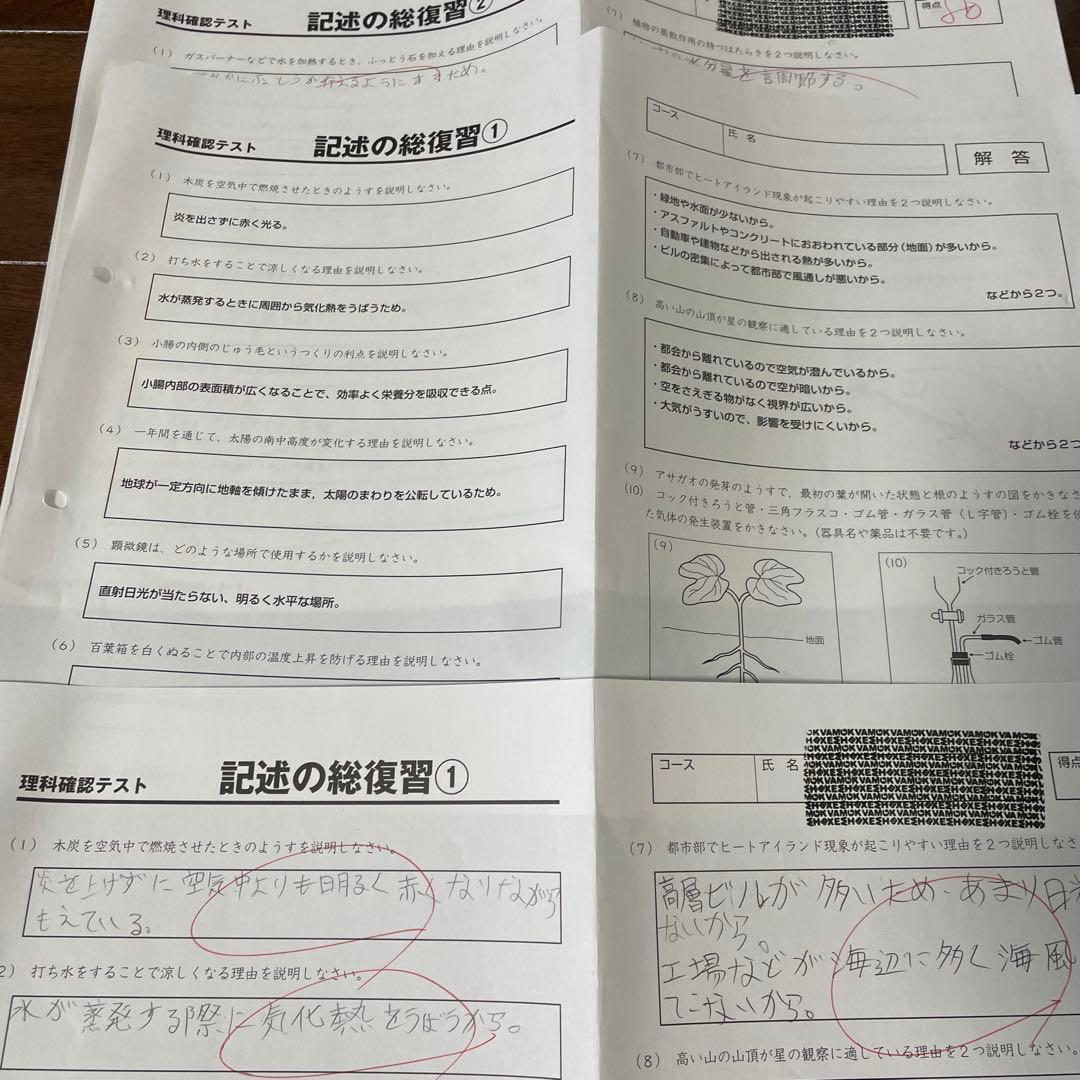 理科確認テスト 記述の総復習②
(1) ガスバーナーなどで水を加熱するとき、ふっとう石を加える理由を説明しなさい。
(7) 植物の蒸散作用の持つはたらきを2つ説明しなさい。
得点
水分量を調節する。
理科確認テスト 記述の総復習①
(1) 木炭を空気中で燃焼させたときのようすを説明しなさい。
炎を出さずに赤く光る。
(2) 打ち水をすることで涼しくなる理由を説明しなさい。
水が蒸発するときに周囲から気化熱をうばうため。
(3) 小腸の内側のじゅう毛というつくりの利点を説明しなさい。
小腸内部の表面積が広くなることで、効率よく栄養分を吸収できる点。
(4) 一年間を通じて、太陽の南中高度が変化する理由を説明しなさい。
地球が一定方向に地軸を傾けたまま，太陽のまわりを公転しているため。
(5) 顕微鏡は、どのような場所で使用するかを説明しなさい。
直射日光が当たらない、明るく水平な場所。
(6) 百葉箱を白くぬることで内部の温度上昇を防げる理由を説明しなさい。
コース
氏名
解答
(7) 都市部でヒートアイランド現象が起こりやすい理由を2つ説明しなさい。
・緑地や水面が少ないから。
・アスファルトやコンクリートにおおわれている部分(地面)が多いから。
・自動車や建物などから出される熱が多いから。
・ビルの密集によって都市部で風通しが悪いから。
などから2つ。
(8) 高い山の山頂が星の観察に適している理由を2つ説明しなさい。
・都会から離れているので空気が澄んでいるから。
・都会から離れているので空が暗いから。
・空をさえぎる物がなく視界が広いから。
・大気がうすいので、影響を受けにくいから。
などから2つ
(9) アサガオの発芽のようすで，最初の葉が開いた状態と根のようすの図をかきなさ
(10) コック付きろうと管・三角フラスコ・ゴム管・ガラス管(L字管)・ゴム栓を使
た気体の発生装置をかきなさい。(器具名や薬品は不要です。)
(9)
地面
(10)
コック付きろうと管
ガラス管
ゴム管
ゴム栓
理科確認テスト 記述の総復習①
(1) 木炭を空気中で燃焼させたときのようすを説明しなさい。
炎を上げずに空気中よりも明るく赤くなりながら
もえている。
2) 打ち水をすることで涼しくなる理由を説明しなさい。
水が蒸発する際に気化熱をうばうから。
コース
氏名
得点
(7) 都市部でヒートアイランド現象が起こりやすい理由を2つ説明しなさ
高層ビルが多いため、あまり日光
ないから。
工場などが海辺に多く海風
てこないから。
(8) 高い山の山頂が星の観察に適している理由を2つ説明しなさい。